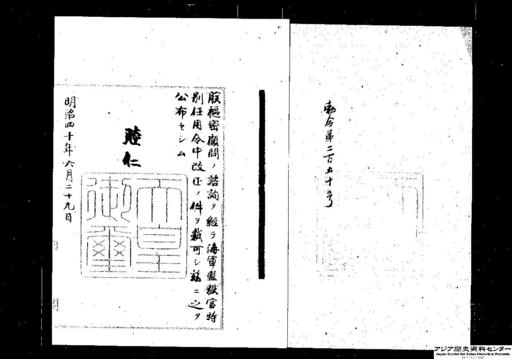 勅令第二百五十号
朕枢密顧問ノ諮詢ヲ経テ海軍監獄官特
別任用令中改正ノ件ヲ裁可シ茲ニ之ヲ
公布セシム
睦仁
天皇
御璽
明治四十年六月二十九日
アジア歴史資料センター
Japan Center for Asian Historical Records